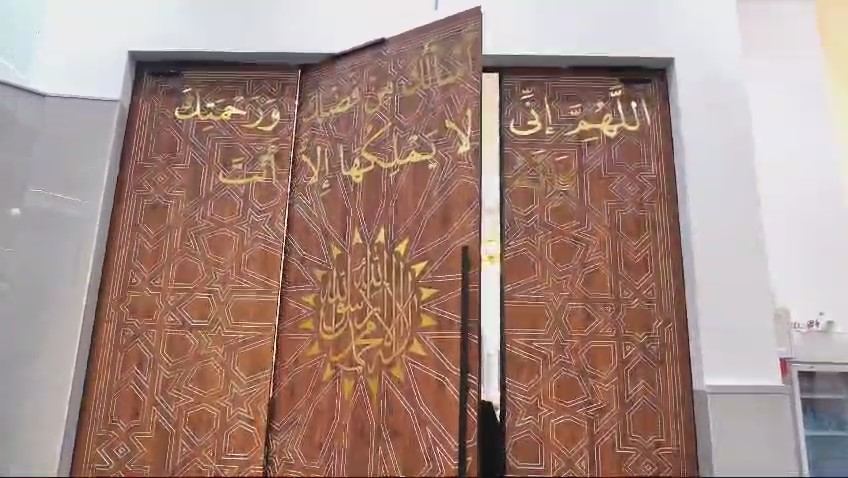 اللَّهُمَّ إِنِّي أَسْأَلُكَ مِن فَضْلِكَ وَرَحْمَتِكَ
لا يَمْلِكُها إِلاَّ أَنْتَ
لا إله إلا الله محمد رسول الله